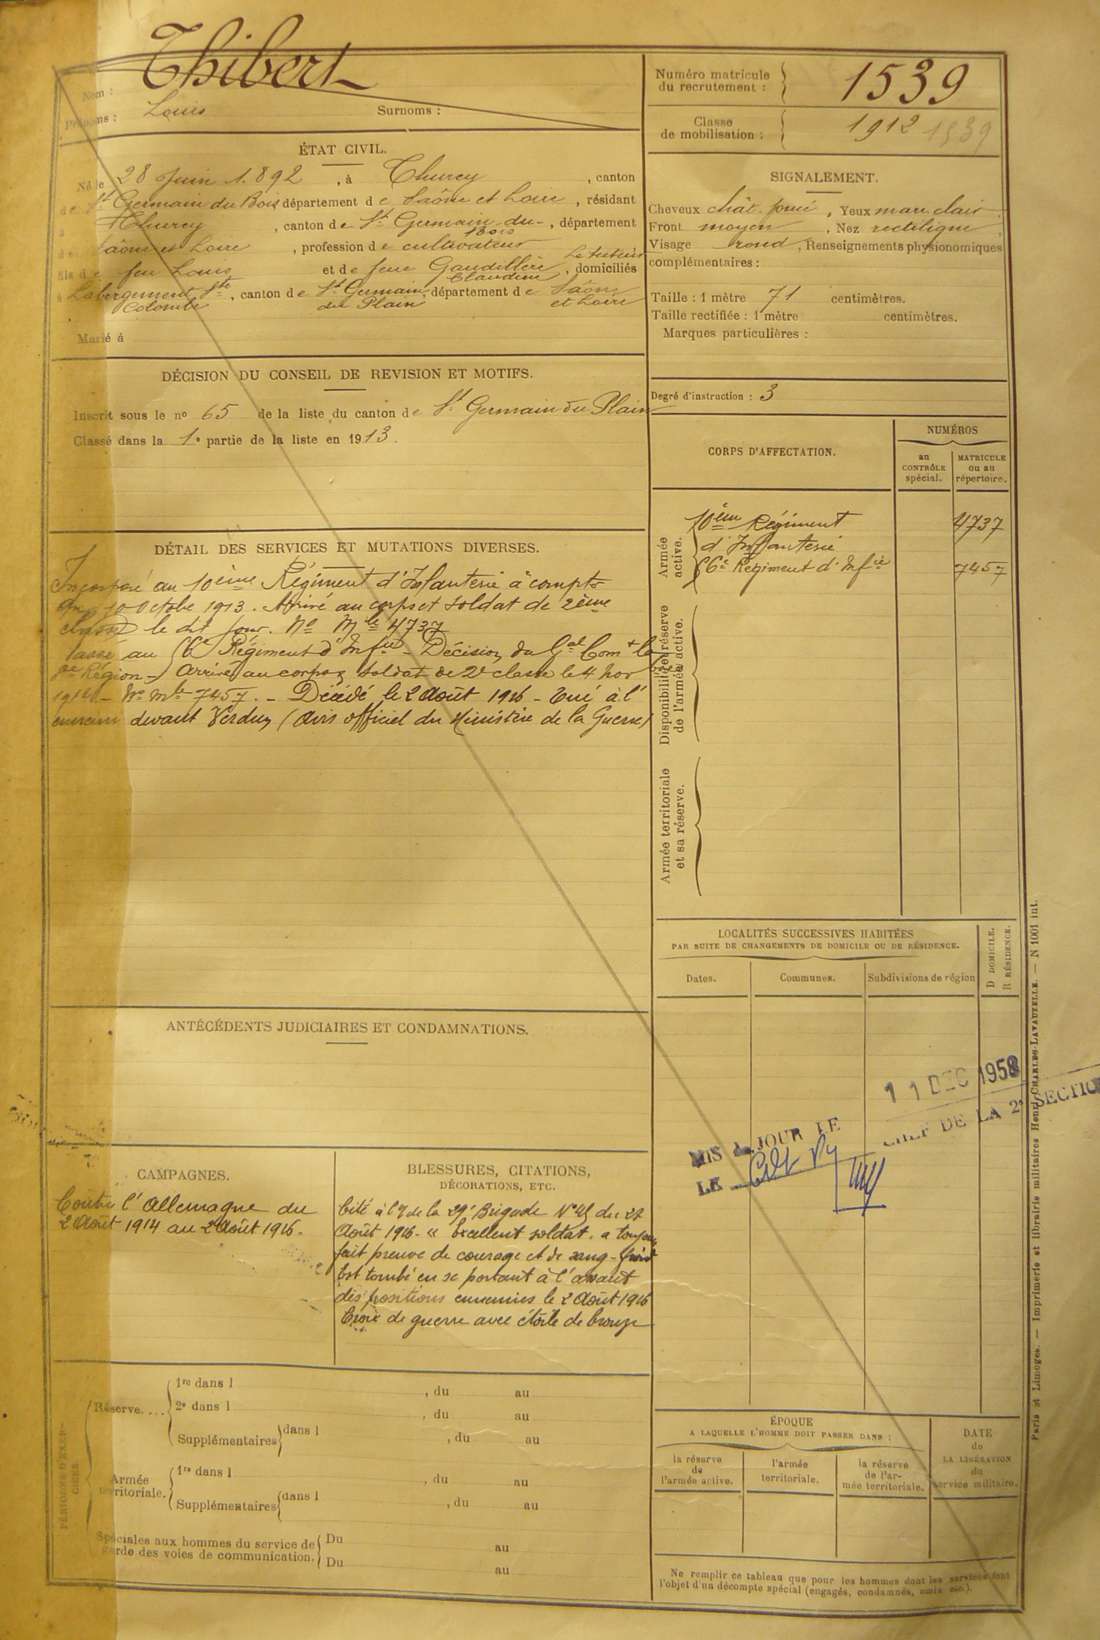 Nom : Thibert
Prénoms : Louis Surnoms :
Numéro matricule
du recrutement : 1539
Classe
de mobilisation : 1912 1539
ÉTAT CIVIL.
Né le 28 Juin 1892, à Thurey, canton
de St Germain du Bois département de Saône et Loire, résidant
à Thurey, canton de St Germain du Bois, département
de Saône et Loire, profession de cultivateur
fils de feu Louis et de feue Gaudillère Claudine, domiciliés
à Labergement Ste Colombe, canton de St Germain du Plain, département de Saône et Loire
Marié à
SIGNALEMENT.
Cheveux chât. foncé, Yeux mar. clair
Front moyen, Nez rectiligne
Visage rond, Renseignements physionomiques
complémentaires :
Taille : 1 mètre 71 centimètres.
Taille rectifiée : 1 mètre centimètres.
Marques particulières :
Degré d'instruction : 3
DÉCISION DU CONSEIL DE REVISION ET MOTIFS.
Inscrit sous le no 65 de la liste du canton de St Germain du Plain
Classé dans la 1e partie de la liste en 1913.
CORPS D'AFFECTATION.
NUMÉROS
au
CONTRÔLE
spécial.
MATRICULE
ou au
répertoire.
Armée
active.
10ème Régiment 4737
d'Infanterie
56e Régiment d'Infie 7457
Disponibilité et réserve
de l'armée active.
Armée territoriale
et sa réserve.
DÉTAIL DES SERVICES ET MUTATIONS DIVERSES.
Incorporé au 10ème Régiment d'Infanterie à compter
du 10 Octobre 1913. Arrivé au corps et soldat de 2ème
classe le dit jour. No Mle 4737
Passé au 56e Régiment d'Infie Décision du Gal Comt la
8e Région - Arrivé au corps soldat de 2e classe le 4 Nov
1914 - No Mle 7457. - Décédé le 2 Août 1916 - Tué à l'
ennemi devant Verdun (avis officiel du Ministère de la Guerre)
LOCALITÉS SUCCESSIVES HABITÉES
PAR SUITE DE CHANGEMENTS DE DOMICILE OU DE RÉSIDENCE.
Dates. Communes. Subdivisions de région
D DOMICILE.
R RÉSIDENCE.
ANTÉCÉDENTS JUDICIAIRES ET CONDAMNATIONS.
11 DEC 1958
MIS à JOUR LE
LE CHEF DE LA 2e SECTIO
CAMPAGNES.
Contre l'Allemagne du
2 Août 1914 au 2 Août 1916.
BLESSURES, CITATIONS,
DÉCORATIONS, ETC.
Cité à l'O de la 29e Brigade No 45 du 27
Août 1916. « Excellent soldat, a toujours
fait preuve de courage et de sang-froid
Est tombé en se portant à l'assaut
des positions ennemies le 2 Août 1916
Croix de guerre avec étoile de bronze
PÉRIODES D'EXERCICES
Réserve....
1re dans l , du au
2e dans l , du au
Supplémentaires dans l , du au
Armée
territoriale.
1re dans l , du au
Supplémentaires dans l , du au
Spéciales aux hommes du service de
garde des voies de communication.
Du au
Du au
ÉPOQUE
A LAQUELLE L'HOMME DOIT PASSER DANS :
la réserve
de
l'armée active.
l'armée
territoriale.
la réserve
de l'ar-
mée territoriale.
DATE
de
LA LIBÉRATION
du
service militaire.
Ne remplir ce tableau que pour les hommes dont les services font
l'objet d'un décompte spécial (engagés, condamnés, omis etc.).
Paris et Limoges. — Imprimerie et librairie militaires Henri CHARLES-LAVAUZELLE. — N 1001 int.